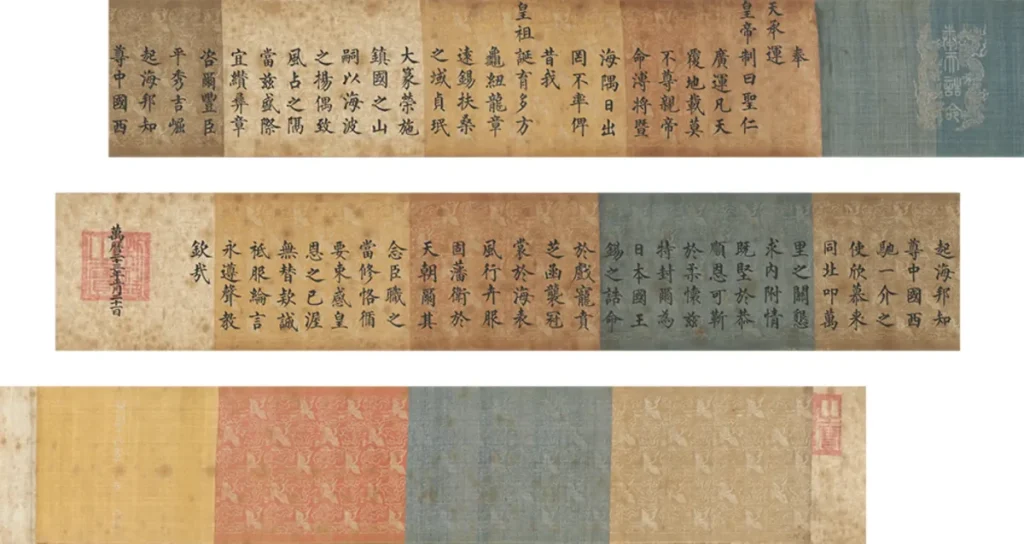 奉天誥命
奉
天承運
皇帝制曰聖仁
廣運凡天
覆地載莫
不尊親帝
命溥將暨
海隅日出
罔不率俾
昔我
皇祖誕育多方
龜紐龍章
遠錫扶桑
之域貞珉
大篆榮施
鎮國之山
嗣以海波
之揚偶致
風占之隔
當茲盛際
宜纘彝章
咨爾豐臣
平秀吉崛
起海邦知
尊中國西
起海邦知
尊中國西
馳一介之
使欣慕來
同北叩萬
里之關懇
求內附情
既堅於恭
順恩可靳
於柔懷茲
特封爾為
日本國王
錫之誥命
於戲寵賁
芝函襲冠
裳於海表
風行卉服
固藩衛於
天朝爾其
念臣職之
當修恪循
要束感皇
恩之已渥
無替款誠
祗服綸言
永遵聲教
欽哉
萬曆二十三年正月二十一日